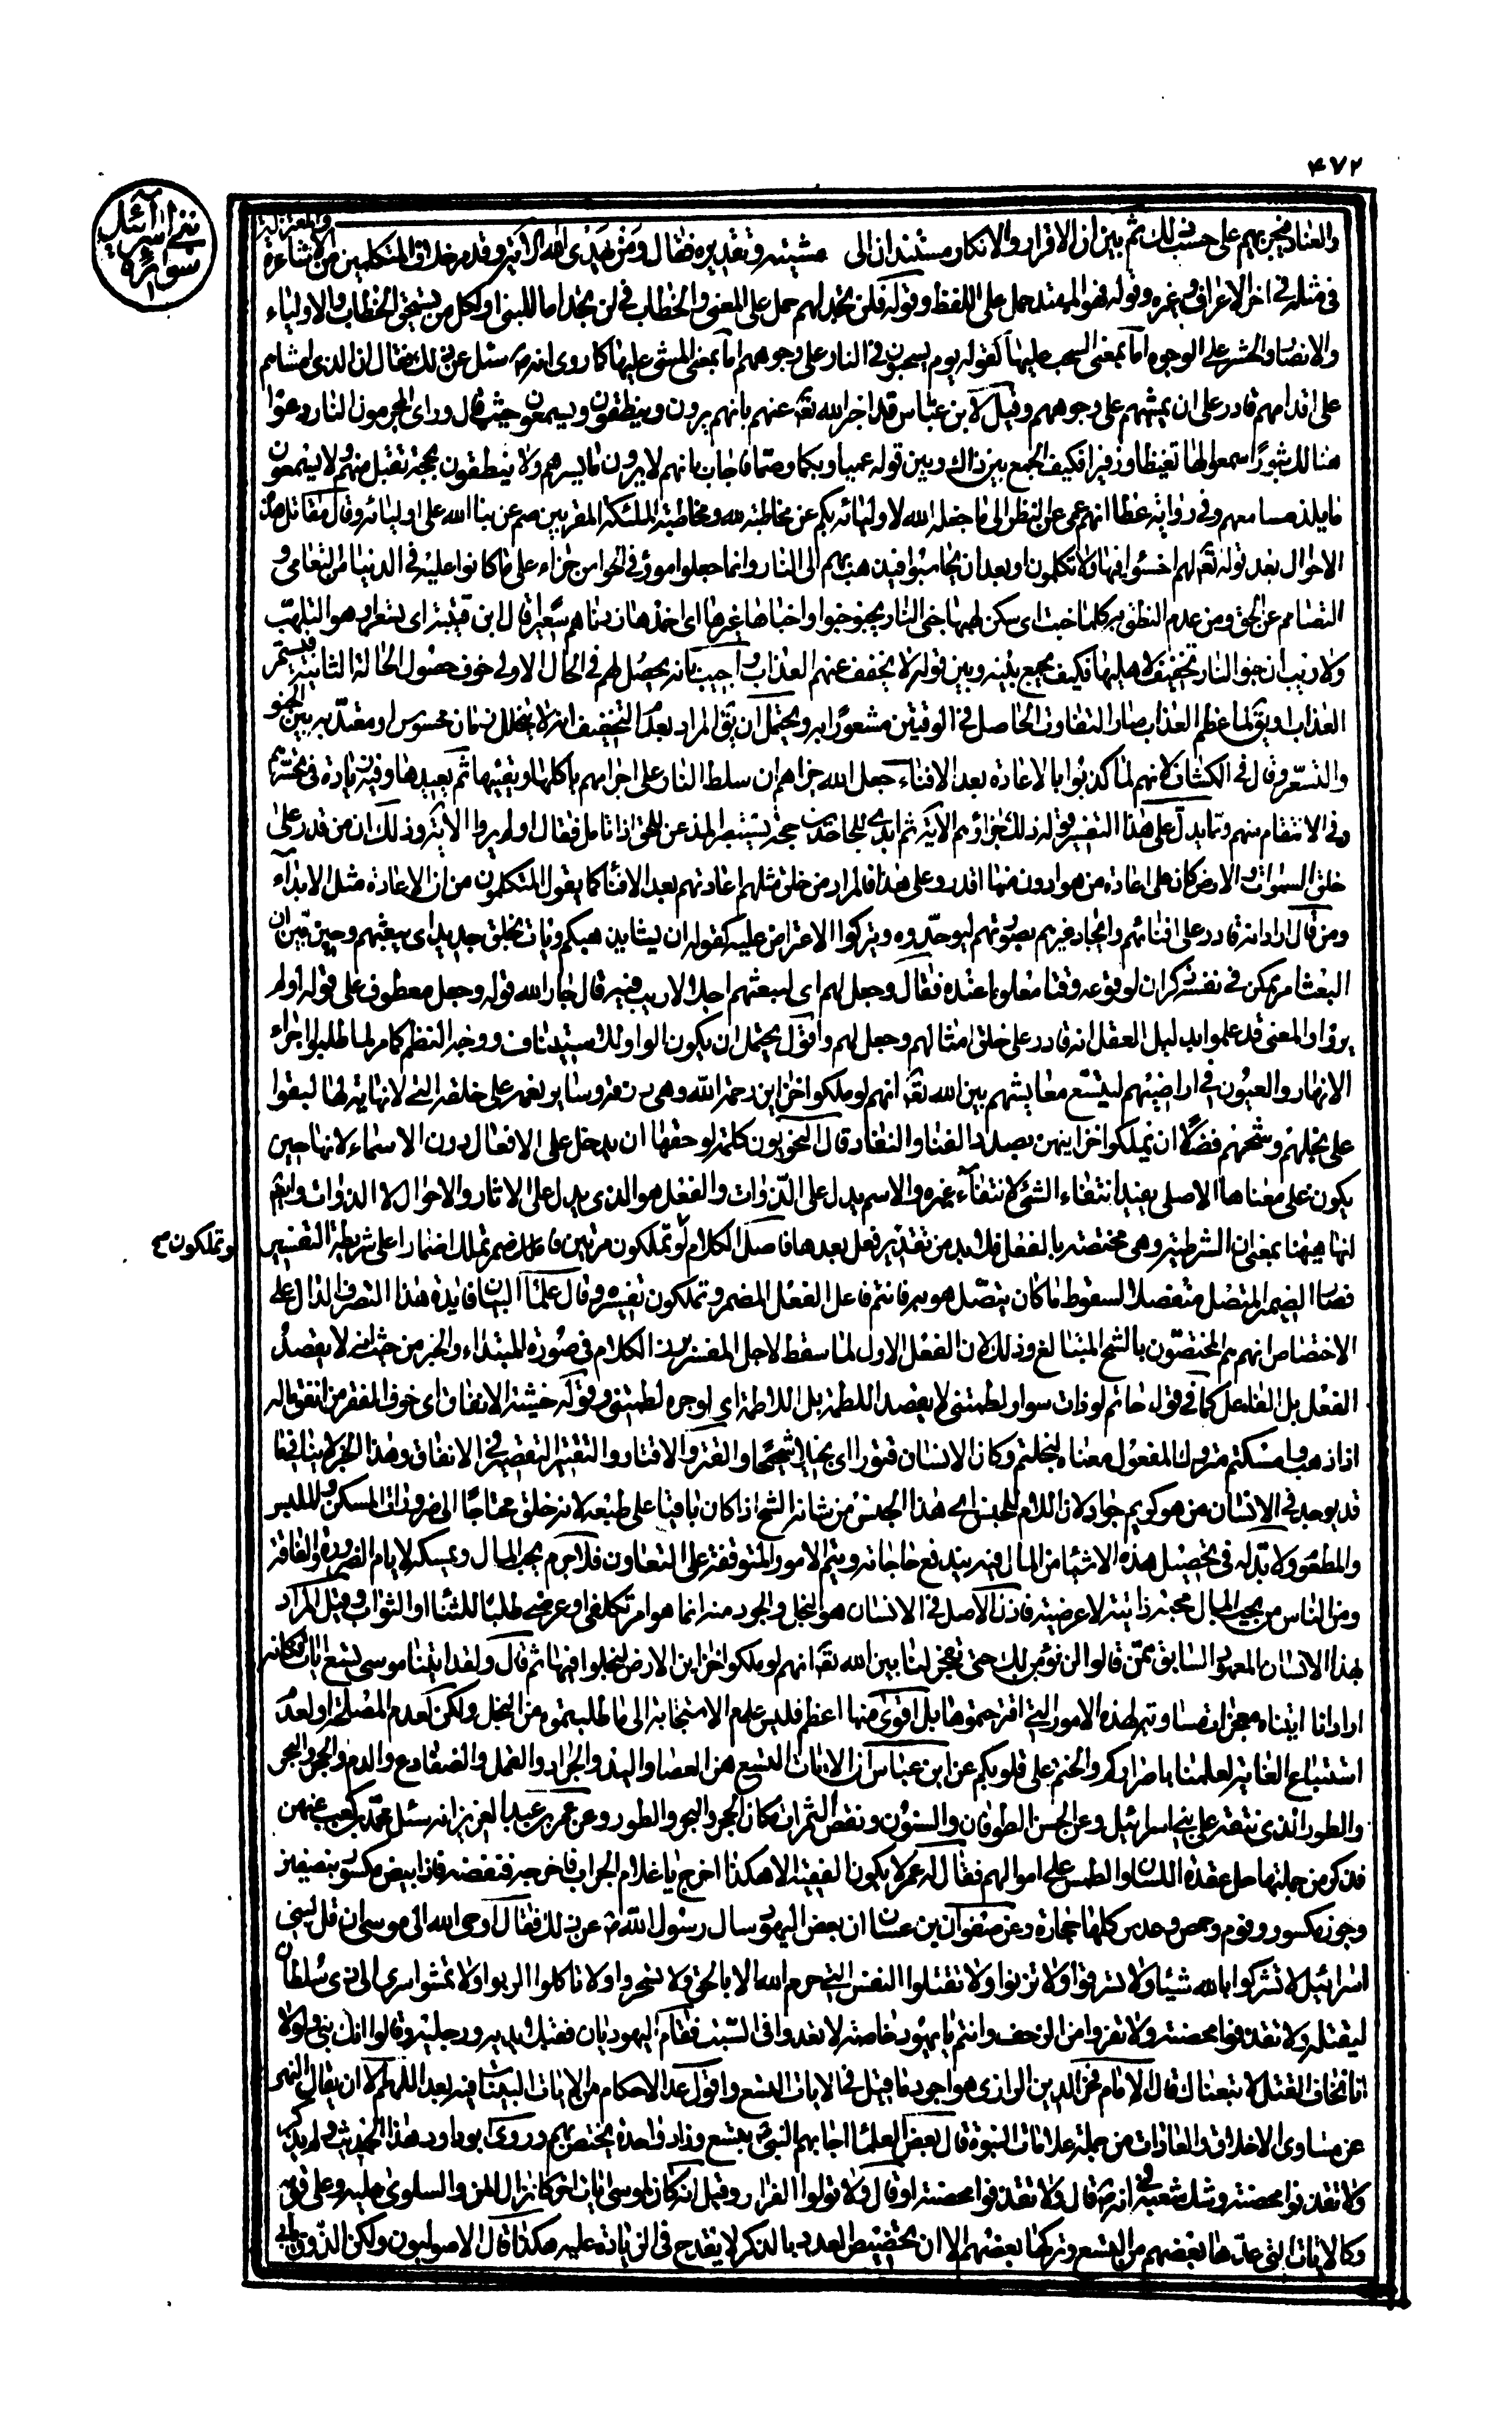 ۴۷۲
بني اسرآئيل
سوره
والعناد فيجزيهم على حسب ذلك ثم بين ان الاقرار والانكار مستندان الى مشيته وتقديره فقال ومن يهدى الله الآية وقد مر خلاف المتكلمين من الاشاعرة والمعتزلة
فى مثله فى اخر الاعراف وغيره وقوله فهو المهتد حمل على اللفظ وقوله فلن تجد لهم حمل على المعنى والخطاب فى لن تجد اما للنبى او لكل من يستحق الخطاب والاولياء
والانصار والحشر على الوجوه اما بمعنى السحب عليها كقوله يوم يسحبون فى النار على وجوههم اما بمعنى المشى عليها كما روى انه ص سئل عن ذلك فقال ان الذى امشاهم
على اقدامهم قادر على ان يمشيهم على وجوههم وقيل لابن عباس قد اخبر الله تعه عنهم بانهم يرون وينطقون ويسمعون حيث قال وراى المجرمون النار دعوا
هنالك ثبورا سمعوا لها تغيظا وزفيرا فكيف الجمع بين ذاك وبين قوله عميا وبكما وصما فاجاب بانهم لا يرون ما يسرهم ولا ينطقون بحجة تقبل منهم ولا يسمعون
ما يلذ مسامعهم وفى رواية عطا انهم عمى عن النظر الى ما جعله الله لاوليائه بكم عن مخاطبة الله ومخاطبة الملئكة المقربين صم عن ثناء الله على اوليائه وقال مقاتل هذه
الاحوال بعد قوله تعه لهم اخسؤا فيها ولا تكلمون او بعد ان يحاسبوا فيذهب بهم الى النار وانما جعلوا مؤفى الحواس جزاء على ما كانوا عليه فى الدنيا من التعامى و
التصامم عن الحق ومن عدم النطق به كلما خبت اى سكن لهبها خبى النار تخبو خبوا واخباها غيرها اى اخمدها زدناهم سعيرا قال ابن قتيبة اى تسعرا وهو التلهب
ولا ريب ان خبو النار تخفيف لاهليها فكيف يجمع بينه وبين قوله لا يخفف عنهم العذاب واجيب بانه يحصل لهم فى الحال الاولى خوف حصول الحالة الثانية فيستمر
العذاب او يق لما عظم العذاب صار التفاوت الحاصل فى الوقتين مشعورا به ويحتمل ان يق المراد بعدم التخفيف انه لا يتخلل زمان محسوس او معتد به بين الخبو
والتسعر وقال فى الكشاف لانهم لما كذبوا بالاعادة بعد الافناء جعل الله جزاهم ان سلط النار على اجزائهم ياكلها ويفنيها ثم يعيدها وفيه زيادة فى تحسرهم
وفى الانتقام منهم ومما يدل على هذا التفسير قوله ذلك جزاؤهم الاية ثم ابدى للجاحدين حجة يستبصر المذعن للحق اذا تامل فقال اولم يروا الاية وذلك ان من قدر على
خلق السموات والارض كان على اعادة من هو ادون منها اقدر وعلى هذا فالمراد من خلق مثلهم اعادتهم بعد الافناء كما يقول المتكلمون من ان الاعادة مثل الابتداء
ومن قال اراد انه قادر على افنائهم وايجاد غيرهم بصورتهم ليوحدوه ويتركوا الاعتراض عليه كقوله ان يشا يذهبكم ويات بخلق جديد اى يبعثهم وحين بين ان
البعث امر ممكن فى نفسه ذكر ان لوقوعه وقتا معلوما عنده فقال وجعل لهم اى لبعثهم اجلا لا ريب فيه قال جار الله قوله وجعل معطوف على قوله اولم
يروا والمعنى قد علموا بدليل العقل انه قادر على خلق امثالهم وجعل لهم واقول يحتمل ان يكون الواو للاستيناف ووجه النظم كما مر لما طلبوا اجراء
الانهار والعيون فى اراضيهم ليتسع معايشهم بين الله تعه انهم لو ملكوا خزاين رحمة الله وهى رزقه وساير نعمه على خلقه التى لا نهاية لها لبقوا
على بخلهم وشحهم فضلا ان يملكوا خزاين هى بصدد الفناء والنفاد قال النحويون كلمة لو حقها ان يدخل على الافعال دون الاسماء لانها حين
يكون على معناها الاصلى يفيد انتفاء الشئ لانتفآء غيره والاسم يدل على الذوات والفعل هو الذى يدل على الاثار والاحوال لا الذوات وايضا
انها هيهنا بمعنى ان الشرطية وهى مختصة بالفعل فلا بد من تقدير فعل بعدها فاصل الكلام لو تملكون مرتين فاضمر تملك اضمارا على شريطة التفسير
لو تملكون صح
فصار الضمير المتصل منفصلا لسقوط ما كان يتصل هو به فانتم فاعل الفعل المضمر وتملكون تفسيره وقال علماء البيان فايدة هذا التصرف الدال على
الاختصاص انهم هم المختصون بالشح المبتالغ وذلك لان الفعل الاول لما سقط لاجل المفسر برز الكلام فى صورة المبتداء والخبر من حيث انه لا يقصد
الفعل بل الفاعل كما فى قول حاتم لو ذات سوار لطمتنى لا يقصد اللطمة بل اللاطمة اى لو حرة لطمتنى وقوله خشية الانفاق اى خوف الفقر من انفق ماله
اذا ذهب وامسكتم متروك المفعول معناه لبخلتم وكان الانسان قتورا اى بخيلا شحيحا والقتر والاقتار والتقتير التقصير فى الانفاق وهذا الخبر لا ينافيه ما
قد يوجد فى الانسان من هو كريم جواد لان اللام للجنس اى هذا الجنس من شانه الشح اذا كان باقيا على طبعه لانه خلق محتاجا الى ضروريات المسكن والملبس
والمطعوم ولا بد له فى تحصيل هذه الاشياء من المال فيه يندفع حاجاته ويتم الامور المتوقفة على التعاون فلا جرم يحب المال ويمسكه لايام الضرورة والفاقة
ومن الناس من يحب المال محبة ذاتية لا عرضية فاذن الاصل فى الانسان هو البخل والجود منه انما هو امر تكلفى او عرضى طلبا للثناء او الثواب وقيل المراد
بهذا الانسان المعهود السابق ممن قالوا لن نؤمن لك حتى تفجر لنا بين الله تعه انهم لو ملكوا خزاين الارض لبخلوا فيها ثم قال ولقد اتينا موسى تسع ايات فكانه
اراد انا اتيناه معجزات مساوية لهذه الامور التى اقترحتموها بل اقوى منها اعظم فليس عدم الاستجابة الى ما طلبتموه من البخل ولكن لعدم المصلحة او لعدم
استتباع الغاية لعلمنا باصراركم والختم على قلوبكم عن ابن عباس ان الايات التسع هى العصا واليد والجراد والقمل والضفادع والدم والحجر والبحر
والطور الذى نتقه على بنى اسرائيل وعن الحسن الطوفان والسنون ونقص الثمرات مكان الحجر والبحر والطور وعن عمر بن عبد العزيز انه سئل محمد بن كعب عنهن
فذكر من جملتها حل عقدة اللسان والطمس على اموالهم فقال له عمر لا يكون الفقيه الا هكذا اخرج يا غلام الجراب فاخرجه فنفضه فاذا بيض مكسور بنصفين
وجوز مكسور وفوم وحمص وعدس كلها حجارة وعن صفوان بن عسال ان بعض اليهود سال رسول الله ص عن ذلك فقال اوحى الله الى موسى ان قل لبنى
اسرائيل لا تشركوا بالله شيئا ولا تسرقوا ولا تزنوا ولا تقتلوا النفس التى حرم الله الا بالحق ولا تسحروا ولا تاكلوا الربوا ولا تمشوا ببرى الى ذى سلطان
ليقتله ولا تقذفوا محصنة ولا تفروا من الزحف وانتم يا يهود خاصة لا تعدوا فى السبت فقام اليهوديان فقبلا يديه ورجليه وقالوا انك نبى ولولا
انا نخاف القتل لاتبعناك قال الامام فخر الدين الرازى هو اجود ما قيل فى الايات التسع واقول عد الاحكام من الايات البينات فيه بعد اللهم الا ان يقال النهى
عن مساوى الاخلاق والعادات من جملة علامات النبوة قال بعض العلماء اجابهم النبى ص بتسع وزاد واحدة يختص بهم وروى ابو داود هذا الحديث ولم يذكر
ولا تقذفوا محصنة وشك شعبة فى انه ص قال ولا تقذفوا محصنة او قال ولا تولوا الفرار وقيل انه كان لموسى ايات اخر كانزال المن والسلوى عليه وعلى قومه
وكالايات التى عدها بعضهم من التسع وتركها بعضهم الا ان تخصيص العدد بالذكر لا يقدح فى الزيادة عليه هكذا قال الاصوليون ولكن الذوق يابى